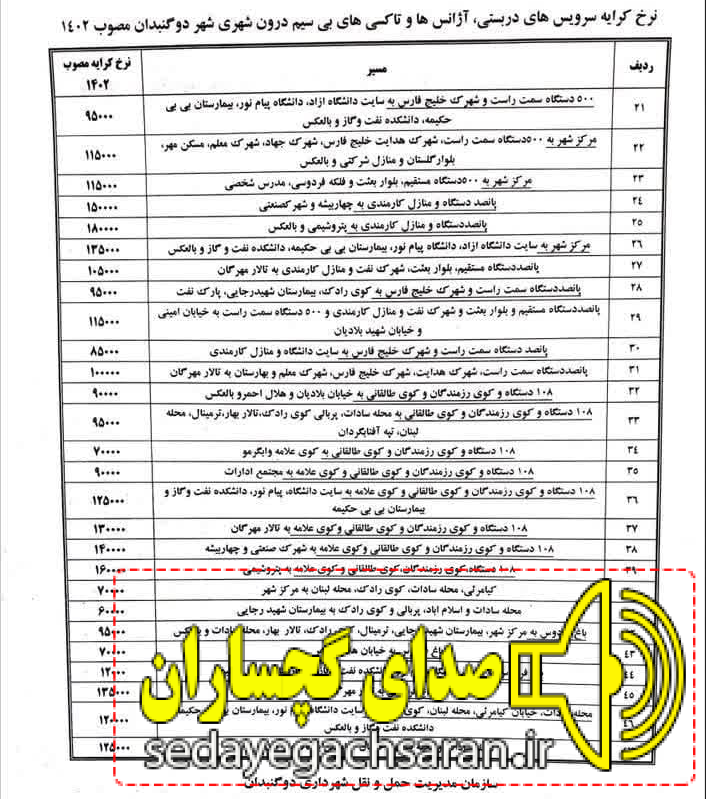 نرخ کرایه سرویس های دربستی، آژانس ها و تاکسی های بی سیم درون شهری شهر دوگنبدان مصوب ۱۴۰۲
ردیف مسیر نرخ کرایه مصوب ۱۴۰۲
۲۱ ۵۰۰ دستگاه سمت راست و شهرک خلیج فارس به سایت دانشگاه ازاد، دانشگاه پیام نور، بیمارستان بی بی
حکیمه، دانشکده نفت وگاز و بالعکس ۹۵۰۰۰
۲۲ مرکز شهر به ۵۰۰دستگاه سمت راست، شهرک هدایت خلیج فارس، شهرک جهاد، شهرک معلم، مسکن مهر،
بلوارگلستان و منازل شرکتی و بالعکس ۱۱۵۰۰۰
۲۳ مرکز شهر به ۵۰۰دستگاه مستقیم، بلوار بعثت و فلکه فردوسی، مدرس شخصی ۱۱۵۰۰۰
۲۴ پانصد دستگاه و منازل کارمندی به چهاربیشه و شهرکصنعتی ۱۵۰۰۰۰
۲۵ پانصددستگاه و منازل کارمندی به پتروشیمی و بالعکس ۱۸۰۰۰۰
۲۶ مرکز شهر به سایت دانشگاه ازاد، دانشگاه پیام نور، بیمارستان بی بی حکیمه، دانشکده نفت و گاز و بالعکس ۱۳۵۰۰۰
۲۷ پانصددستگاه مستقیم، بلوار بعثت، شهرک نفت و منازل کارمندی به تالار مهرگان ۱۰۵۰۰۰
۲۸ پانصددستگاه سمت راست و شهرک خلیج فارس به کوی رادک، بیمارستان شهیدرجایی، پارک نفت ۹۵۰۰۰
۲۹ پانصددستگاه مستقیم و بلوار بعثت و شهرک نفت و منازل کارمندی و ۵۰۰ دستگاه سمت راست به خیابان امینی
و خیابان شهید بلادیان ۱۱۵۰۰۰
۳۰ پانصد دستگاه سمت راست و شهرک خلیج فارس به سایت دانشگاه و منازل کارمندی ۸۵۰۰۰
۳۱ پانصددستگاه سمت راست، شهرک هدایت، شهرک خلیج فارس، شهرک معلم و بهارستان به تالار مهرگان ۱۰۰۰۰۰
۳۲ ۱۰۸ دستگاه و کوی رزمندگان و کوی طالقانی به خیابان بلادیان و هلال احمرو بالعکس ۹۰۰۰۰
۳۳ ۱۰۸ دستگاه و کوی رزمندگان و کوی طالقانی به محله سادات، پربالی کوی رادک،تالار بهار، ترمینال، محله
لبنان، تپه آفتابگردان ۹۵۰۰۰
۳۴ ۱۰۸ دستگاه و کوی رزمندگان و کوی طالقانی و کوی علامه وایگرمو ۷۰۰۰۰
۳۵ ۱۰۸ دستگاه و کوی رزمندگان و کوی طالقانی و کوی علامه به مجتمع ادارات ۹۰۰۰۰
۳۶ ۱۰۸ دستگاه و کوی رزمندگان و کوی طالقانی و کوی علامه به سایت دانشگاه، پیام نور، دانشکده نفت وگاز و
بیمارستان بی بی حکیمه ۱۲۵۰۰۰
۳۷ ۱۰۸ دستگاه و کوی رزمندگان و کوی طالقانی وکوی علامه به تالار مهرگان ۱۳۰۰۰۰
۳۸ ۱۰۸ دستگاه و کوی رزمندگان و کوی طالقانی وکوی علامه به شهرک صنعتی و چهاربیشه ۱۴۰۰۰۰
۳۹ ۱۰۸ دستگاه کوی رزمندگان، کوی طالقانی و کوی علامه به پتروشیمی ۱۶۰۰۰۰
کیامرثی، محله سادات، کوی رادک، محله لبنان به مرکز شهر ۷۰۰۰۰
محله سادات و اسلام اباد، پربالی و کوی رادک به بیمارستان شهید رجایی ۶۰۰۰۰
باغ فردوس به مرکز شهر، بیمارستان شهید رجایی، ترمینال، کوی رادک، تالار بهار، محله سادات و بالعکس ۹۵۰۰۰
۴۳ به خیابان ۷۰۰۰۰
۴۴ دانشکده نفت
۴۵ ۱۳۵۰۰۰
محله سادات، خیابان کیامرثی، محله لبنان، کوی سایت دانشگاه پیام نور، بیمارستان بی بی حکیمه
دانشکده نفت وگاز و بالعکس
۱۲۵۰۰۰
صدای گچساران
sedayegachsaran.ir
سازمان مدیریت حمل و نقل شهرداری دوگنبدان